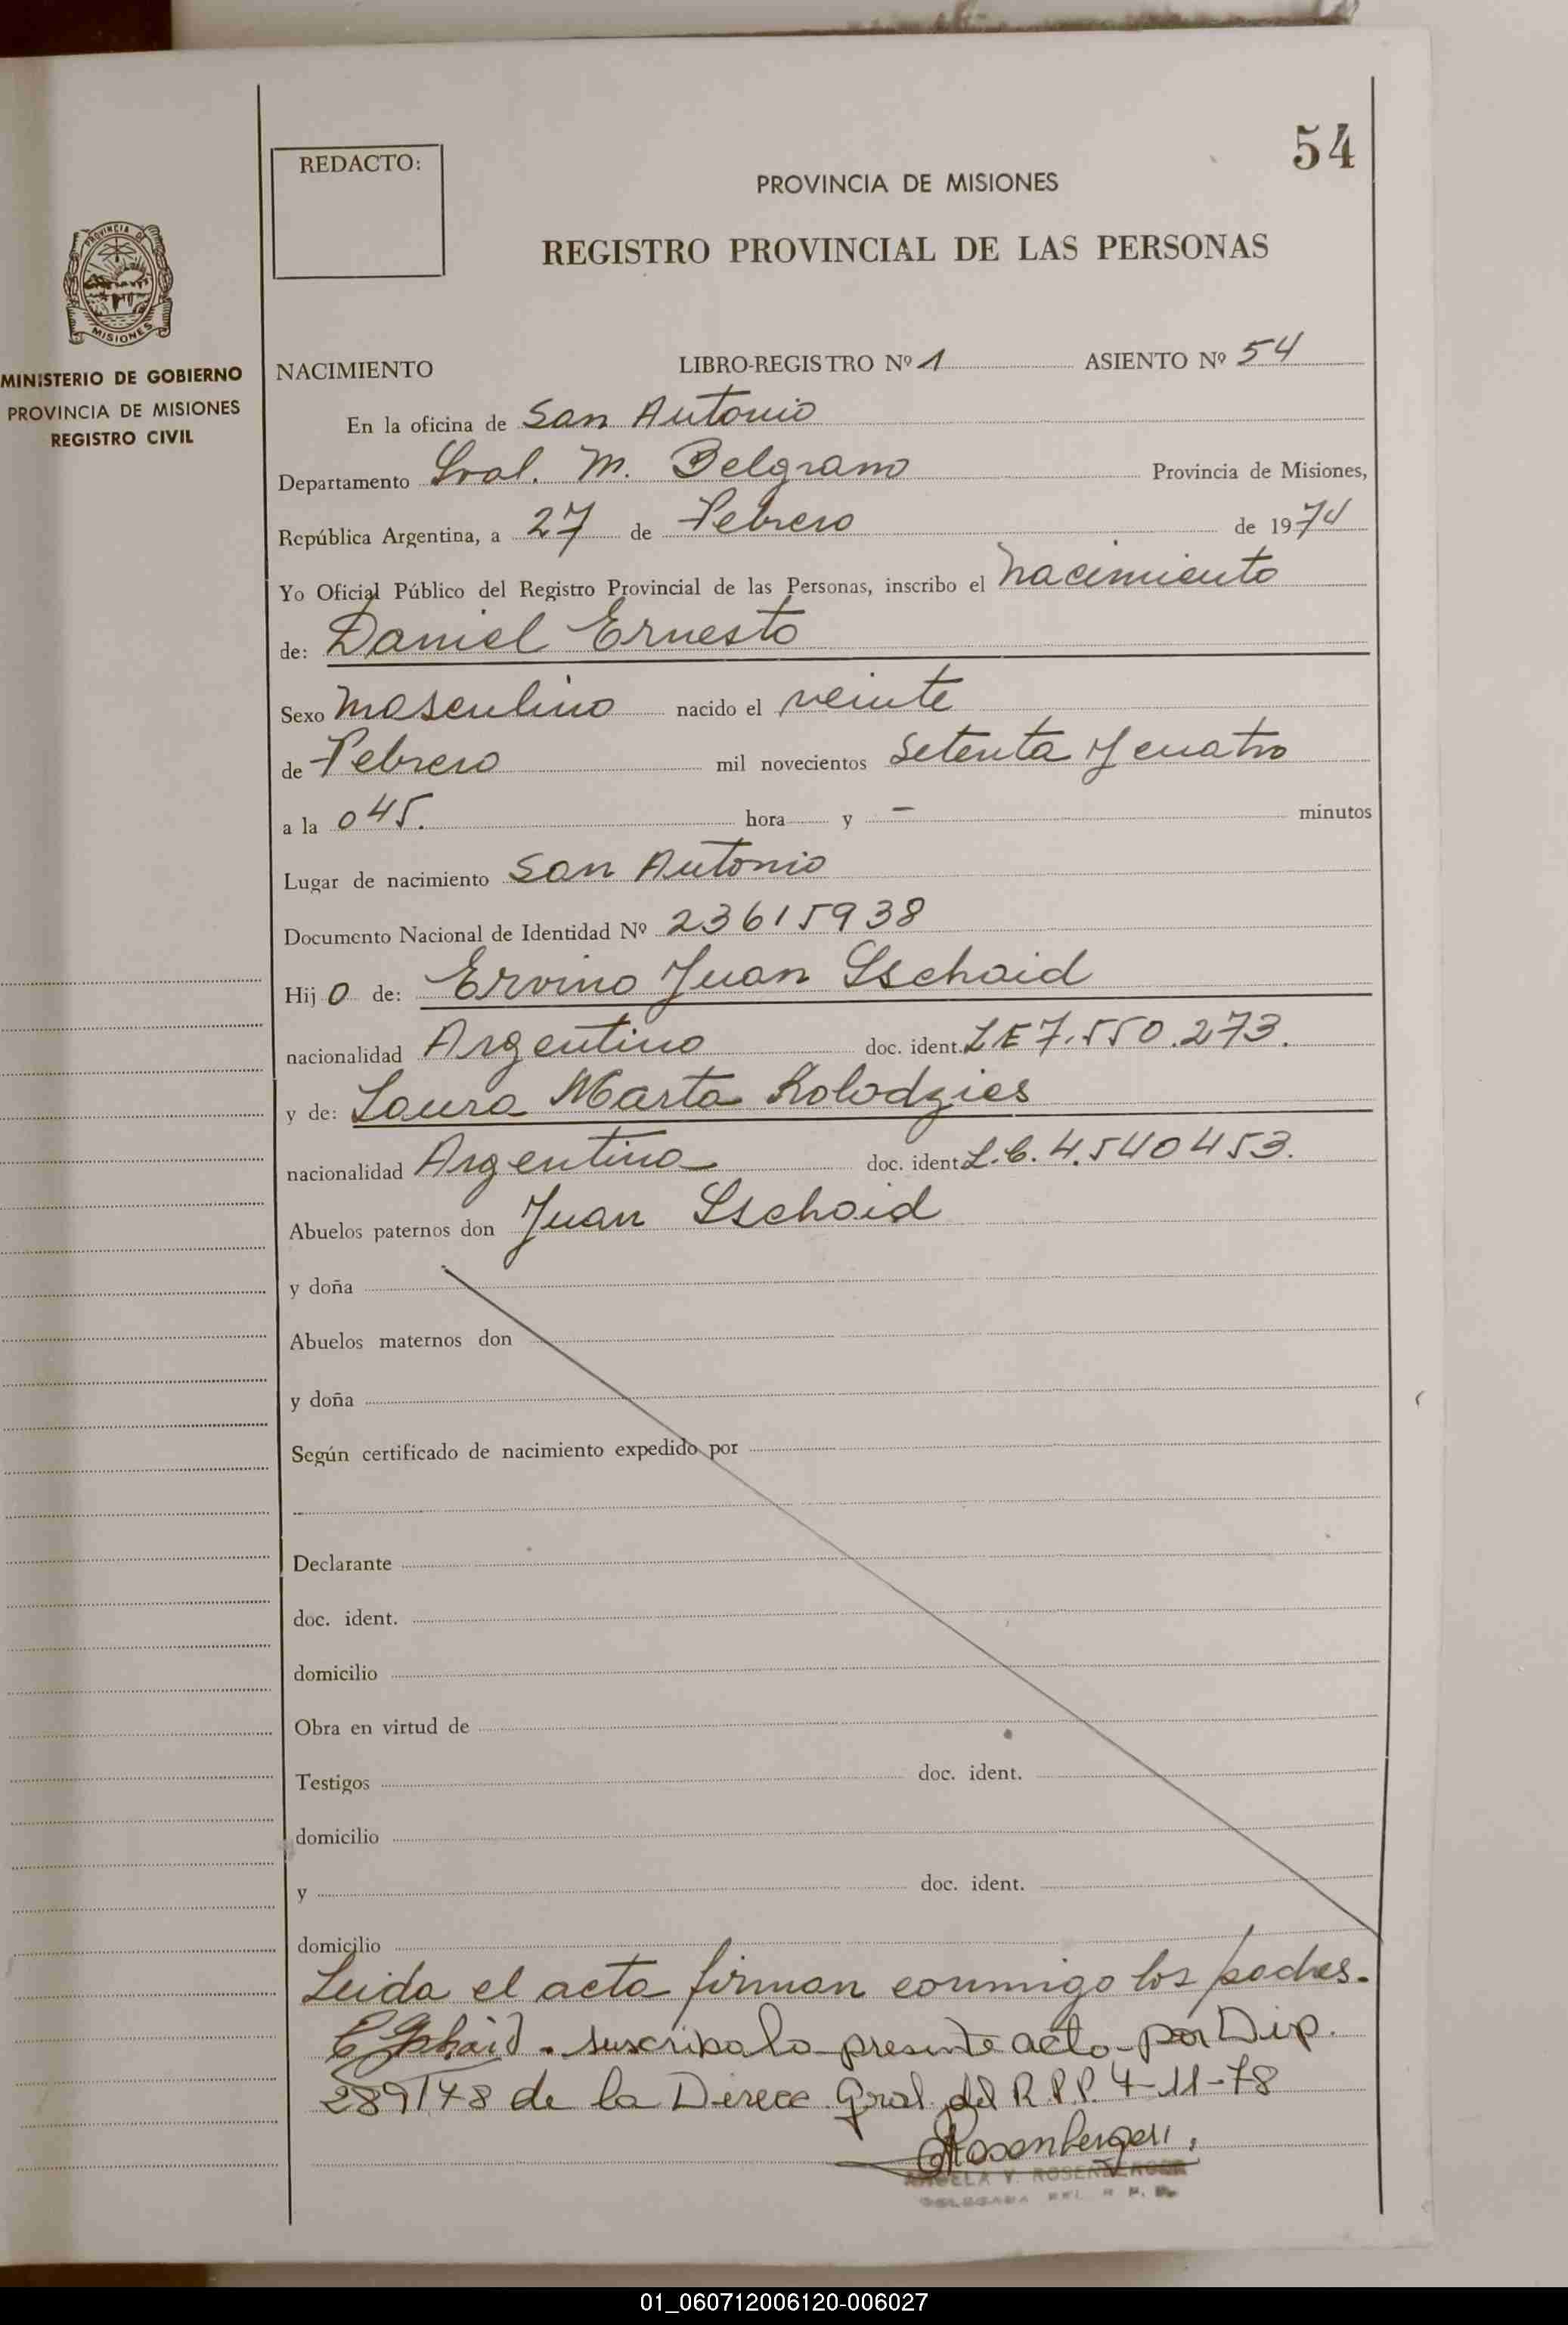 54
REDACTO:
PROVINCIA DE MISIONES
REGISTRO PROVINCIAL DE LAS PERSONAS
PROVINCIA DE
MISIONES
MINISTERIO DE GOBIERNO
PROVINCIA DE MISIONES
REGISTRO CIVIL
NACIMIENTO LIBRO-REGISTRO Nº 1 ASIENTO Nº 54
En la oficina de San Antonio
Departamento Gral. M. Belgrano Provincia de Misiones,
República Argentina, a 27 de Febrero de 1974
Yo Oficial Público del Registro Provincial de las Personas, inscribo el nacimiento
de: Daniel Ernesto
Sexo masculino nacido el veinte
de Febrero mil novecientos setenta y cuatro
a la 045. hora y - minutos
Lugar de nacimiento San Antonio
Documento Nacional de Identidad Nº 23615938
Hijo de: Ervino Juan Sschaid
nacionalidad Argentino doc. ident. LE 7.550.273.
y de: Laura Marta Kolodzies
nacionalidad Argentina doc. ident L.C. 4.540453.
Abuelos paternos don Juan Sschaid
y doña
Abuelos maternos don
y doña
Según certificado de nacimiento expedido por
Declarante
doc. ident.
domicilio
Obra en virtud de
Testigos doc. ident.
domicilio
y doc. ident.
domicilio
Leida el acta firman conmigo los padres.
suscribo la presente acta por Disp.
289/78 de la Direcc Gral. del R.P.P. 4-11-78
Rosenberger
ANGELA V. ROSENBERGER
DELEGADA DEL R. P. P.
01_060712006120-006027